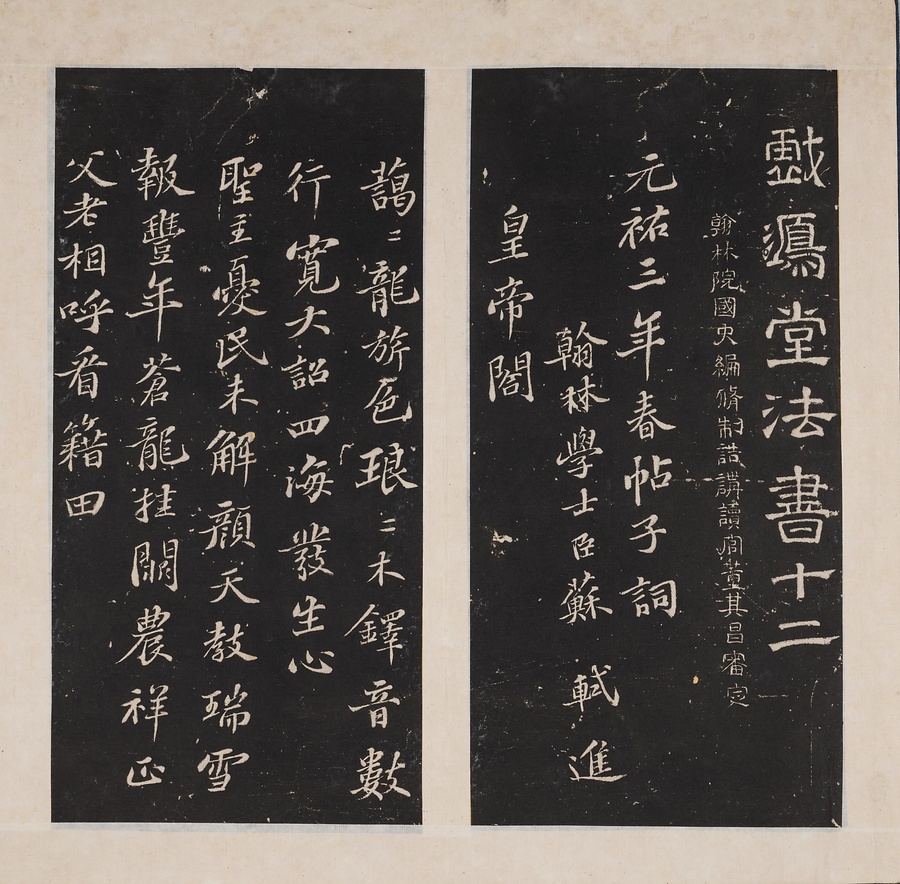 戲鴻堂法書十二
翰林院國史編脩制誥講讀官董其昌審定
元祐三年春帖子詞
翰林學士臣蘇軾進
皇帝閣
藹〻龍旂色琅〻木鐸音數
行寬大詔四海發生心
聖主憂民未解顏天教瑞雪
報豐年蒼龍挂闕農祥正
父老相呼看籍田